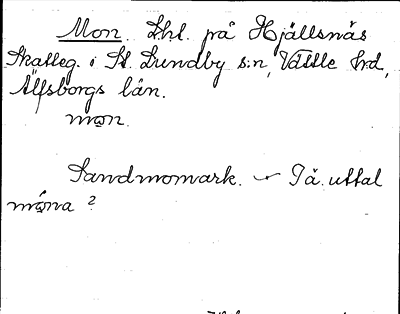 Mon. Lht. på Hjällsnäs
Skatteg. i St. Lundby s:n, Vättle hd,
Älfsborgs län.
mon.
Sandmomark. — Gå. uttal
måna?